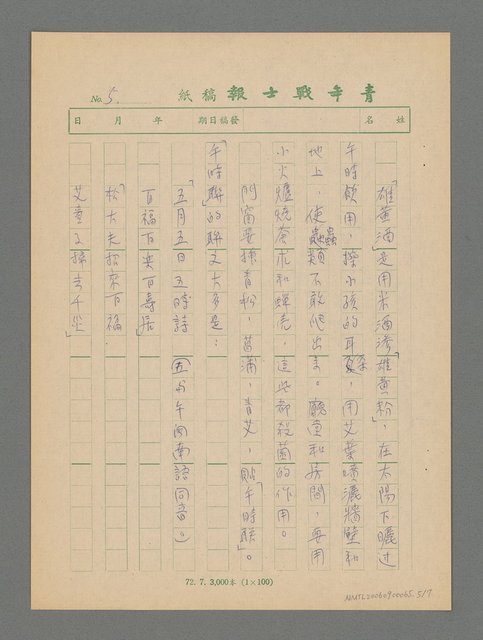 青年戰士報稿紙
No. 5.
姓名 發稿日期 年 月 日
「雄黃酒」是用米酒滲「雄黃粉」，在太陽下曬过
午時飲用，擦小孩的耳朵，用艾葉噴灑牆壁和
地上，使蟲類不敢爬出来。廳堂和房間，再用
小火爐燒蒼朮和蟬壳，這些都殺菌的作用。
門窗要插青松，菖蒲，青艾，貼「午時聯」。
「午時聯」的聯文大多是：
「五月五日五時詩 （五与午閩南語同音。）
百福百来百壽居」
「松大夫招來百福
艾童子掃去千災」
72. 7. 3,000本 (1×100)
NMTL20060900065. 5/7